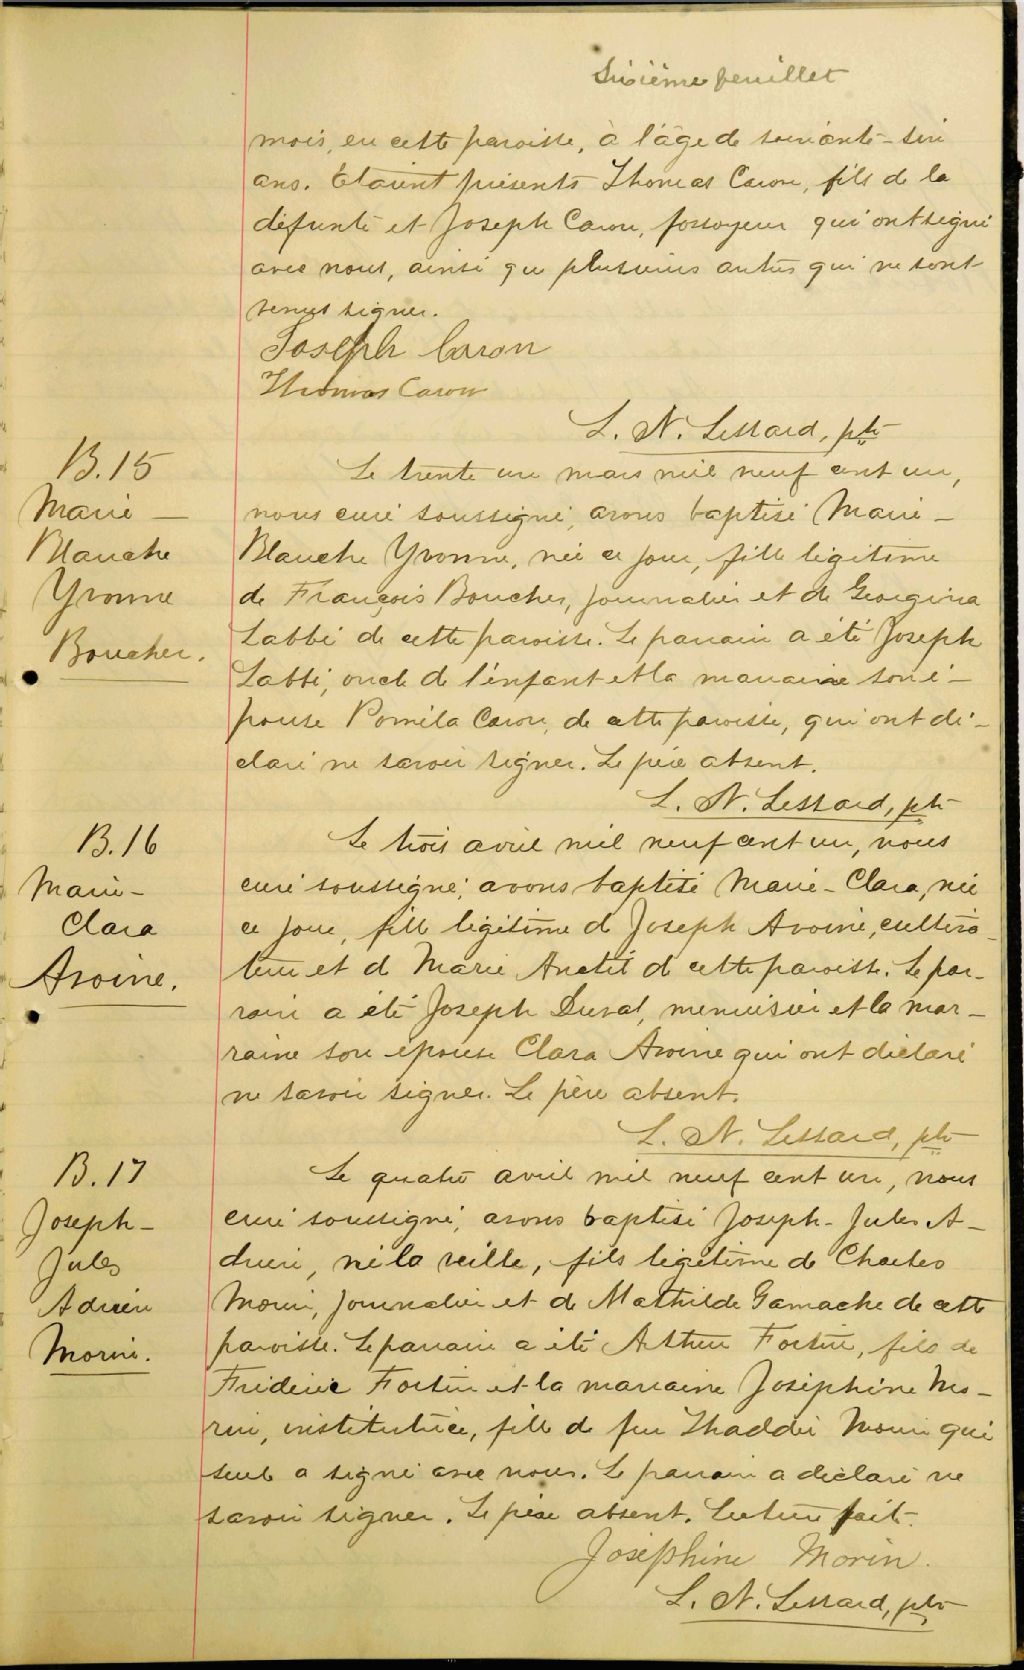 Sixième feuillet
mois, en cette paroisse, à l'âge de soixante-six
ans. Étaient présents Thomas Caron, fils de la
défunte et Joseph Caron, fossoyeur qui ont signé
avec nous, ainsi que plusieurs autres qui ne sont
venus signer.
Joseph Caron
Thomas Caron
L. N. Lessard, ptre
B.15
Marie-
Blanche
Yvonne
Boucher.
Le trente un mars mil neuf cent un,
nous curé soussigné, avons baptisé Marie-
Blanche Yvonne, née ce jour, fille légitime
de François Boucher, journalier et de Georgina
Labbé de cette paroisse. Le parrain a été Joseph
Labbé, oncle de l'enfant et la marraine son é-
pouse Roméla Caron, de cette paroisse, qui ont dé-
claré ne savoir signer. Le père absent.
L. N. Lessard, ptre
B.16
Marie-
Clara
Avoine.
Le trois avril mil neuf cent un, nous
curé soussigné, avons baptisé Marie-Clara, née
ce jour, fille légitime de Joseph Avoine, cultiva-
teur et de Marie Anctil de cette paroisse. Le par-
rain a été Joseph Duval, menuisier et la mar-
raine son épouse Clara Avoine qui ont déclaré
ne savoir signer. Le père absent.
L. N. Lessard, ptre
B.17
Joseph-
Jules
Adrien
Morin.
Le quatre avril mil neuf cent un, nous
curé soussigné, avons baptisé Joseph-Jules A-
drien, né la veille, fils légitime de Charles
Morin, journalier et de Mathilde Gamache de cette
paroisse. Le parrain a été Arthur Fortin, fils de
Fridéric Fortin et la marraine Joséphine Mo-
rin, institutrice, fille de feu Thaddé Morin qui
seule a signé avec nous. Le parrain a déclaré ne
savoir signer. Le père absent. Lecture faite.
Joséphine Morin.
L. N. Lessard, ptre